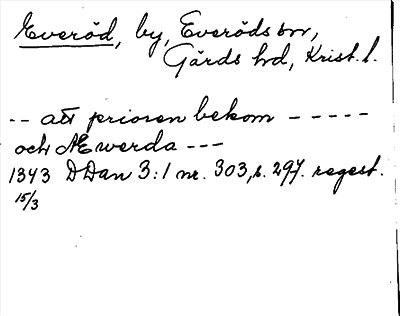 Everöd, by, Everöds sn,
Gärds hd, Krist. l.
-- att prioren bekom -----
och Æwerda ---
1343 DDan 3:1 nr. 303, s. 297. regest.
15/3